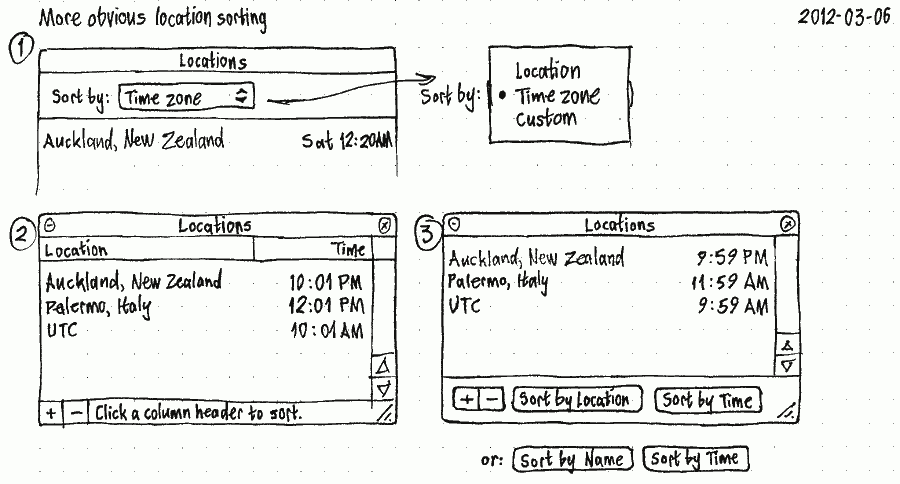 More obvious location sorting
2012-03-06
1
Locations
Sort by: Time zone
Auckland, New Zealand Sat 12:20AM
Sort by:
Location
• Time zone
Custom
2
Locations
Location Time
Auckland, New Zealand 10:01 PM
Palermo, Italy 12:01 PM
UTC 10:01 AM
+ - Click a column header to sort.
3
Locations
Auckland, New Zealand 9:59 PM
Palermo, Italy 11:59 AM
UTC 9:59 AM
+ - Sort by Location Sort by Time
or: Sort by Name Sort by Time